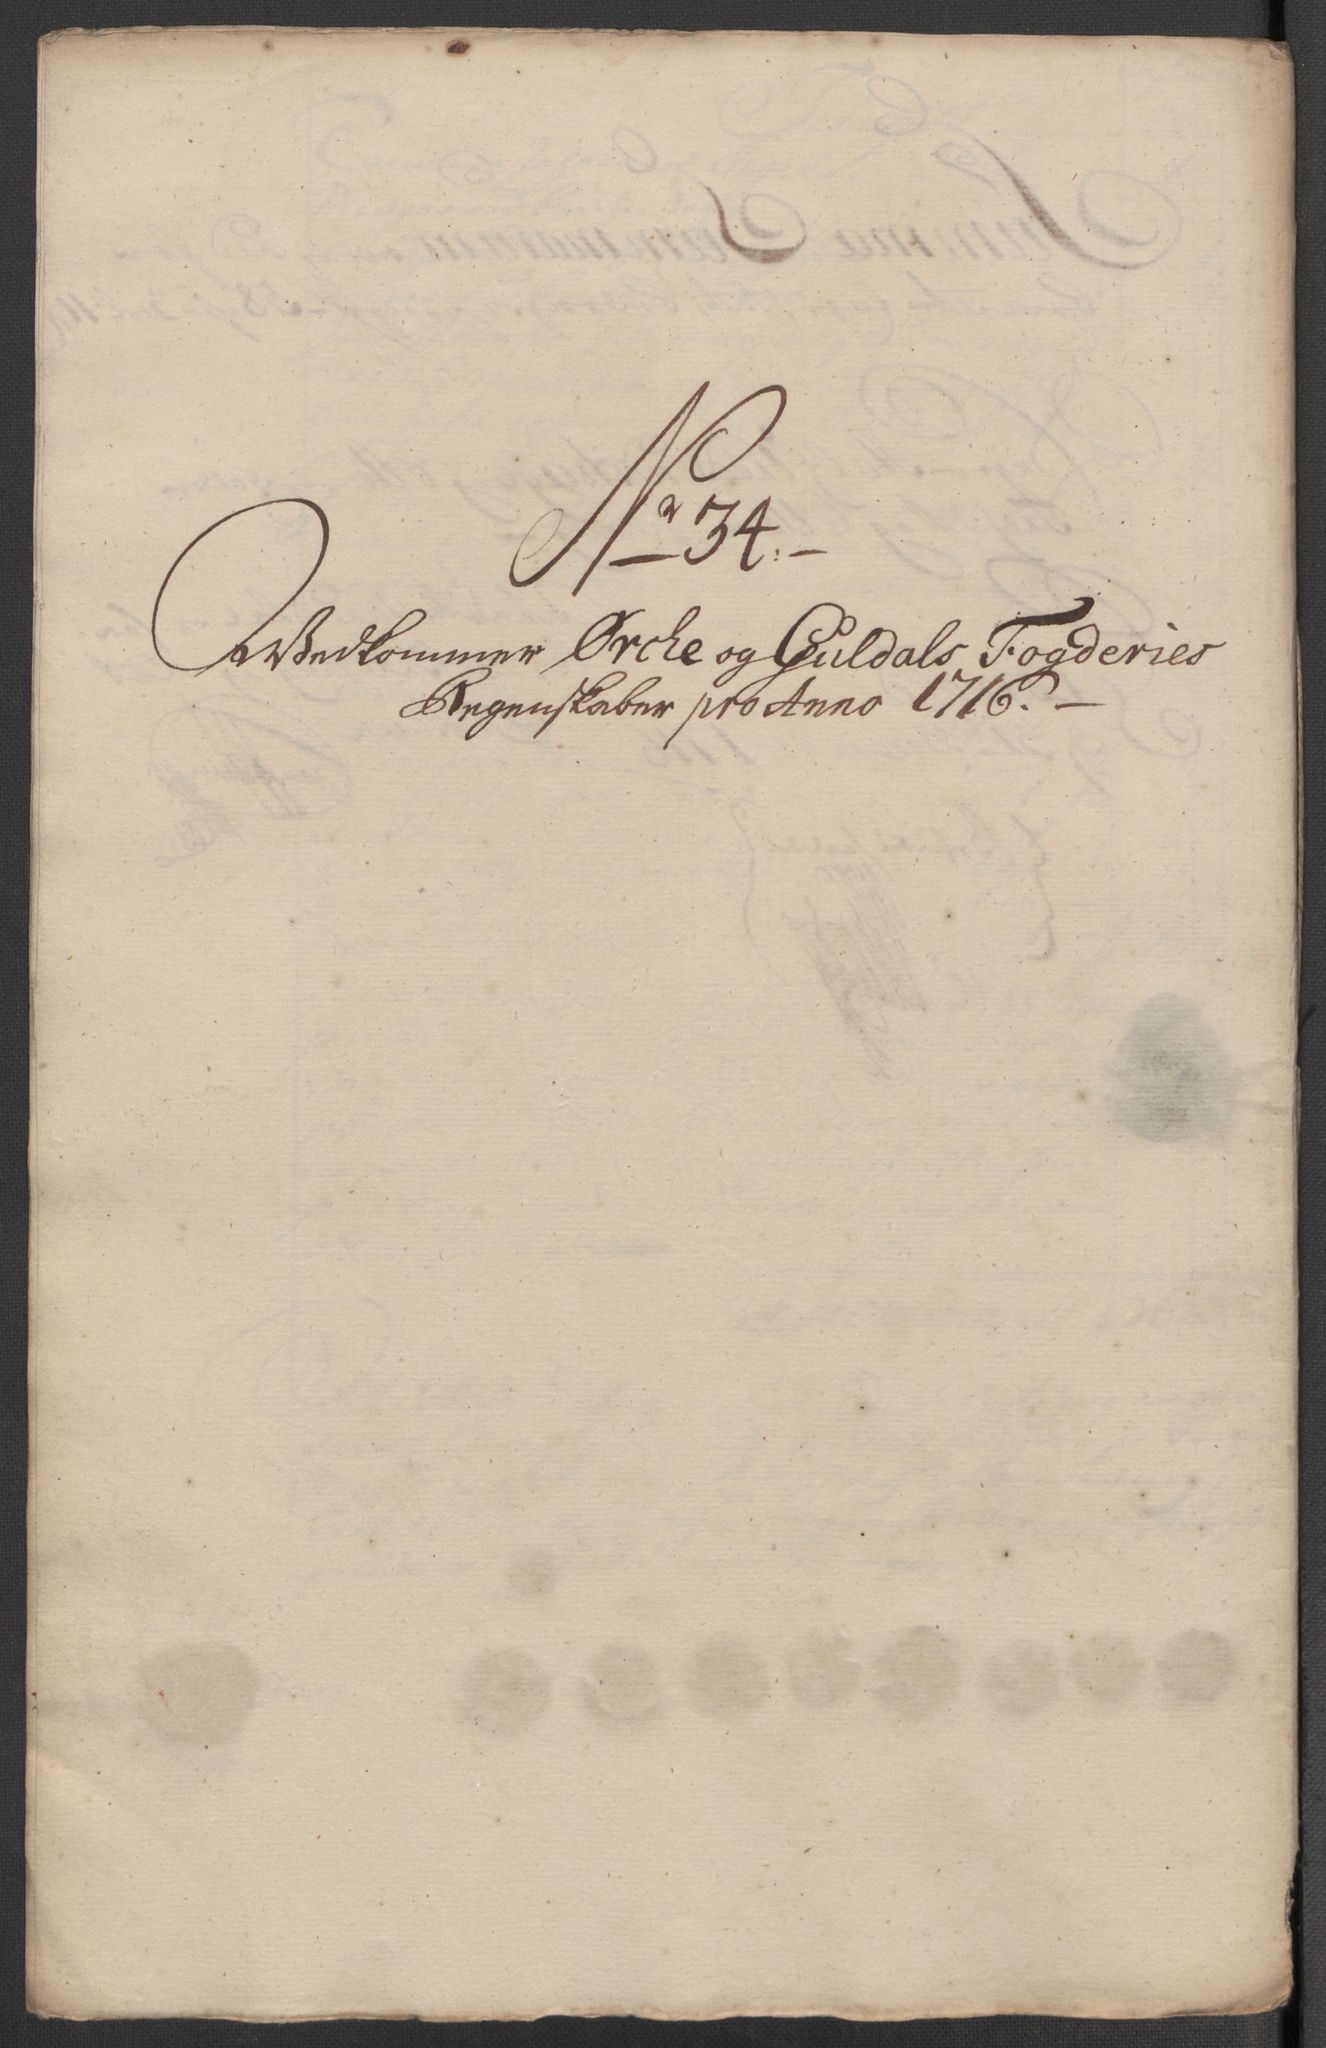 No 34.
Vedkommer Ørche og Guldals Fogderies
Regenskaber pro Anno 1716.